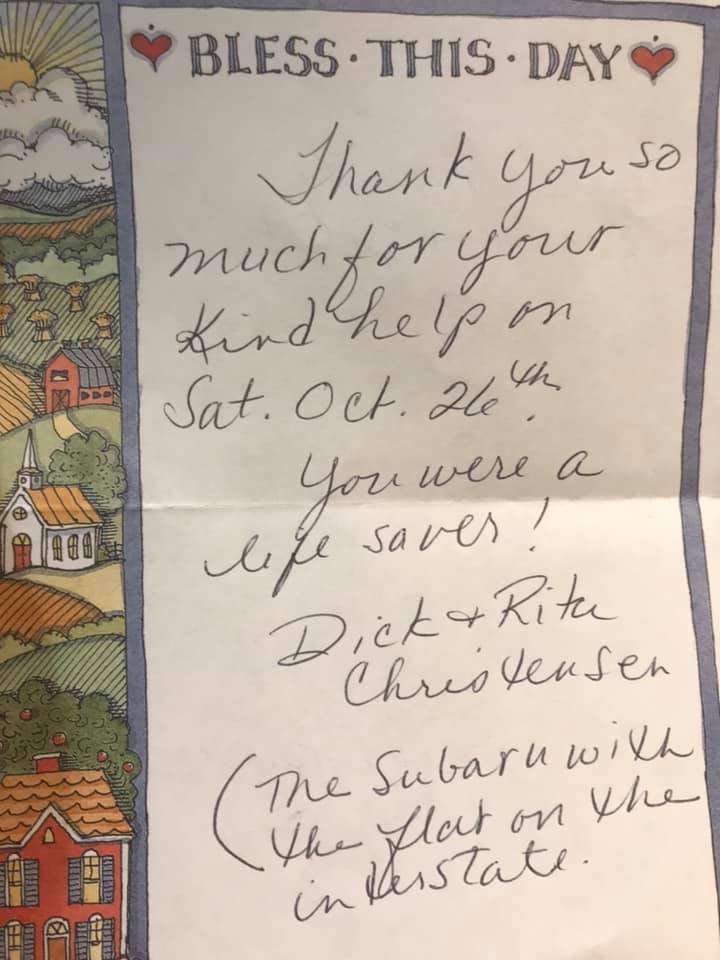 BLESS · THIS · DAY
Thank you so
much for your
Kind help on
Sat. Oct. 26th.
You were a
life saver!
Dick & Rita
Christensen
(The Subaru with
the flat on the
interstate.